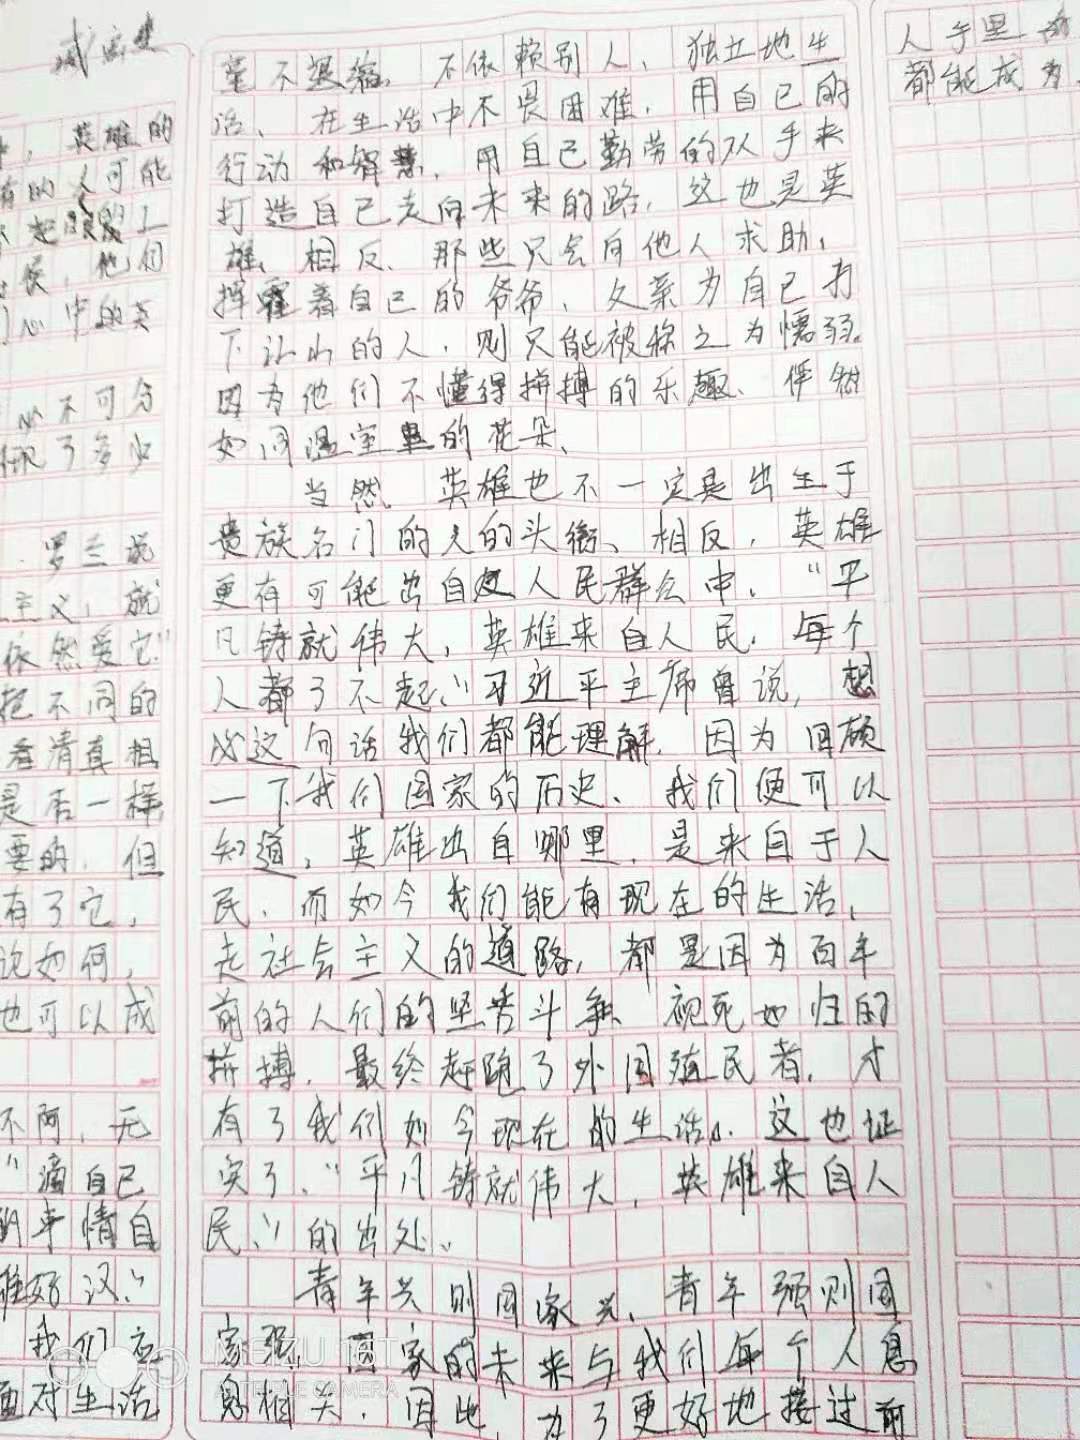 英雄的
的人可能
他们
心中的英
不可分
了多少
罗兰说
主义,就
依然爱它"
把不同的
看清真相
是否一样
要的,但
有了它,
说如何,
也可以成
不阿,无
"滴自己
的事情自
雄好汉。"
我们应
面对生活
不退缩,不依赖别人,独立地生
活、在生活中不畏困难,用自己的
行动和智慧,用自己勤劳的双手来
打造自己走向未来的路,这也是英
雄、相反、那些只会向他人求助,
挥霍着自己的爷爷、父亲为自己打
下江山的人,则只能被称之为懦弱。
因为他们不懂得拼搏的乐趣、俨然
如同温室里的花朵、
当然、英雄也不一定是出生于
贵族名门的的头衔、相反,英雄
更有可能出自人民群众中,"平
凡铸就伟大,英雄来自人民,每个
人都了不起、"习近平主席曾说,想
必这句话我们都能理解,因为回顾
一下我们国家的历史、我们便可以
知道,英雄出自哪里,是来自于人
民,而如今我们能有现在的生活,
走社会主义的道路,都是因为百年
前的人们的坚苦斗争、视死如归的
拼搏,最终赶跑了外国殖民者,才
有了我们如今现在的生活。这也证
实了,"平凡铸就伟大,英雄来自人
民、"的出处、
青年兴则国家兴,青年强则国
家强,国家的未来与我们每个人息
息相关,因此,为了更好地接过前
人手里
都能成为
MEIZU 16T